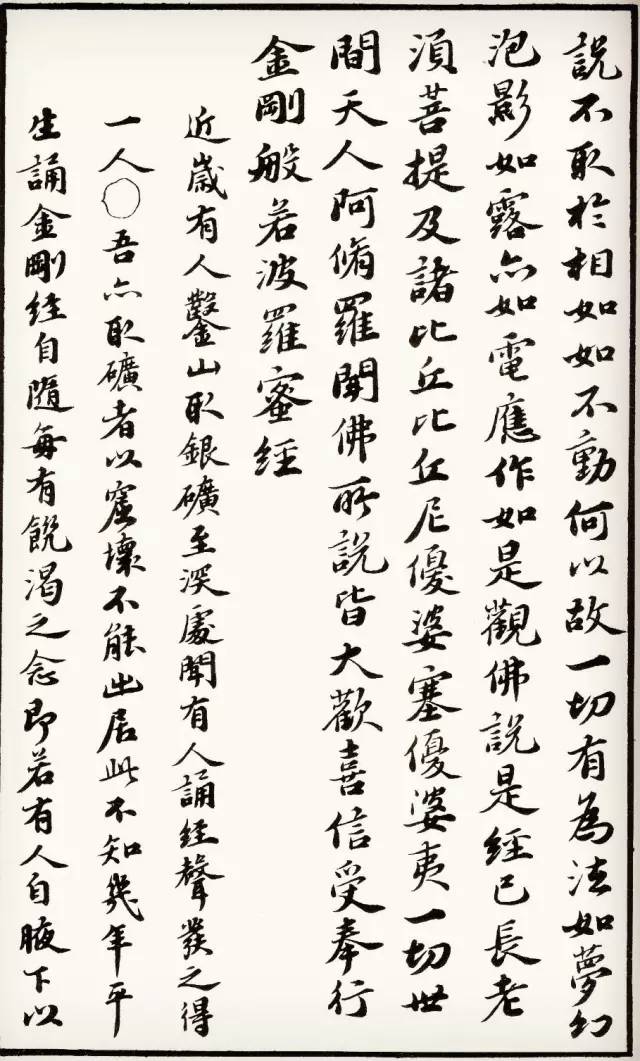 説不取於相如如不動何以故一切有為法如夢幻
泡影如露亦如電應作如是觀佛說是經已長老
須菩提及諸比丘比丘尼優婆塞優婆夷一切世
間天人阿脩羅聞佛所説皆大歡喜信受奉行
金剛般若波羅蜜經
近歲有人鑿山取銀礦至深處聞有人誦經聲發之得
一人○吾亦取礦者以窟壞不能出居此不知幾年平
生誦金剛經自隨每有飢渴之念即若有人自腋下以